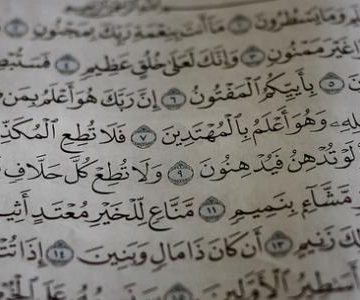 وَمَا يَسْطُرُونَ ١ مَا أَنتَ بِنِعْمَةِ رَبِّكَ بِمَجْنُونٍ ٢
غَيْرَ مَمْنُونٍ ٣ وَإِنَّكَ لَعَلَىٰ خُلُقٍ عَظِيمٍ ٤
٥ بِأَييِّكُمُ ٱلْمَفْتُونُ ٦ إِنَّ رَبَّكَ هُوَ أَعْلَمُ بِمَن
وَهُوَ أَعْلَمُ بِٱلْمُهْتَدِينَ ٧ فَلَا تُطِعِ
لَوْ تُدْهِنُ فَيُدْهِنُونَ ٩ وَلَا تُطِعْ كُلَّ حَلَّافٍ
مَّشَّآءٍۭ بِنَمِيمٍ ١١ مَّنَّاعٍ لِّلْخَيْرِ مُعْتَدٍ
زَنِيمٍ ١٣ أَن كَانَ ذَا مَالٍ وَبَنِينَ ١٤ إِذَا
أَسَٰطِيرُ ٱلْأَوَّلِينَ ١٥